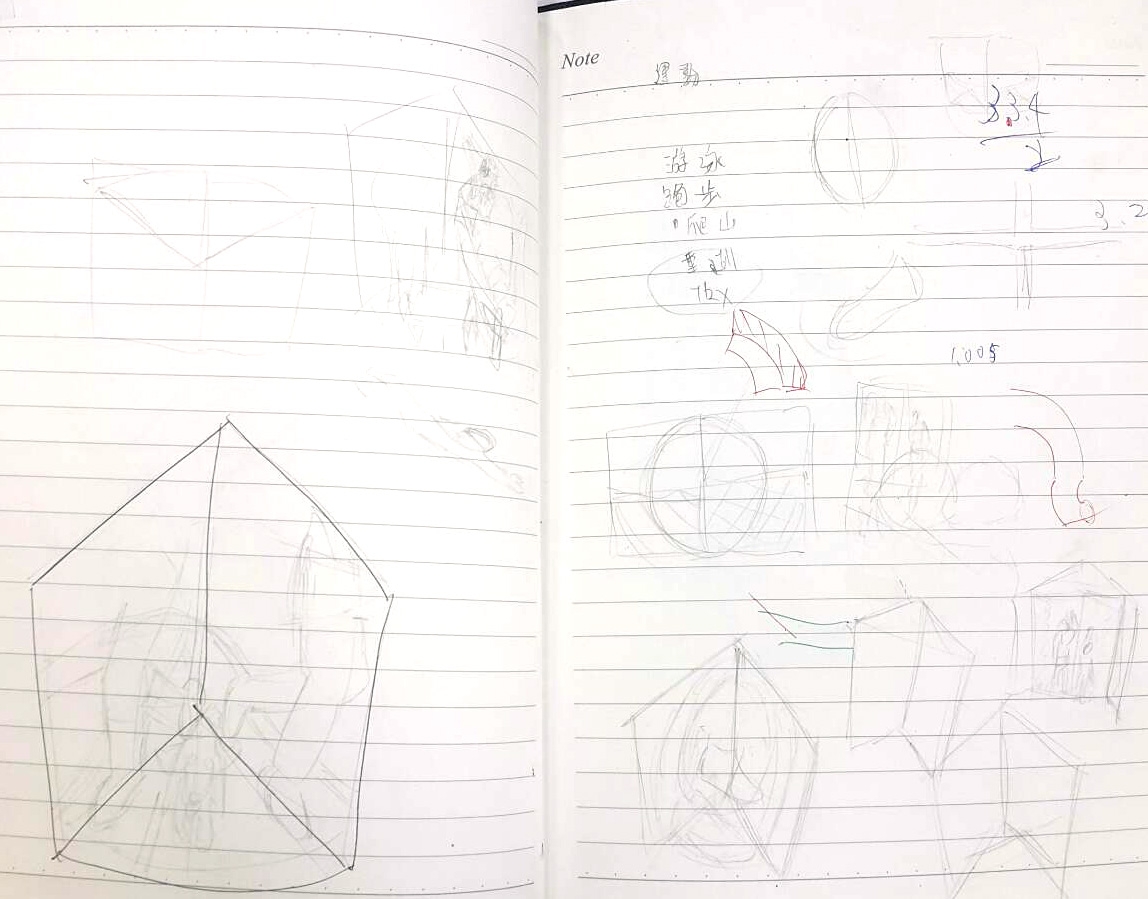 Note
運動
3.3.4
游泳
跑步
爬山
3.2
重訓
TRX
1.005